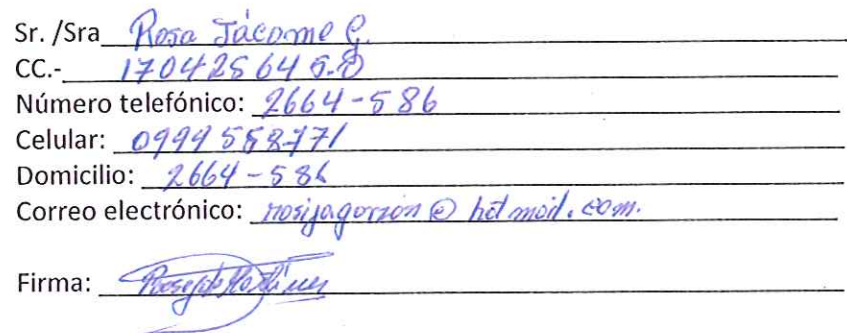 Sr. /Sra Rosa Jácome G.
CC.- 170425645-0
Número telefónico: 2664-586
Celular: 0999558771
Domicilio: 2664-586
Correo electrónico: rosijagorzon@hotmail.com.
Firma: